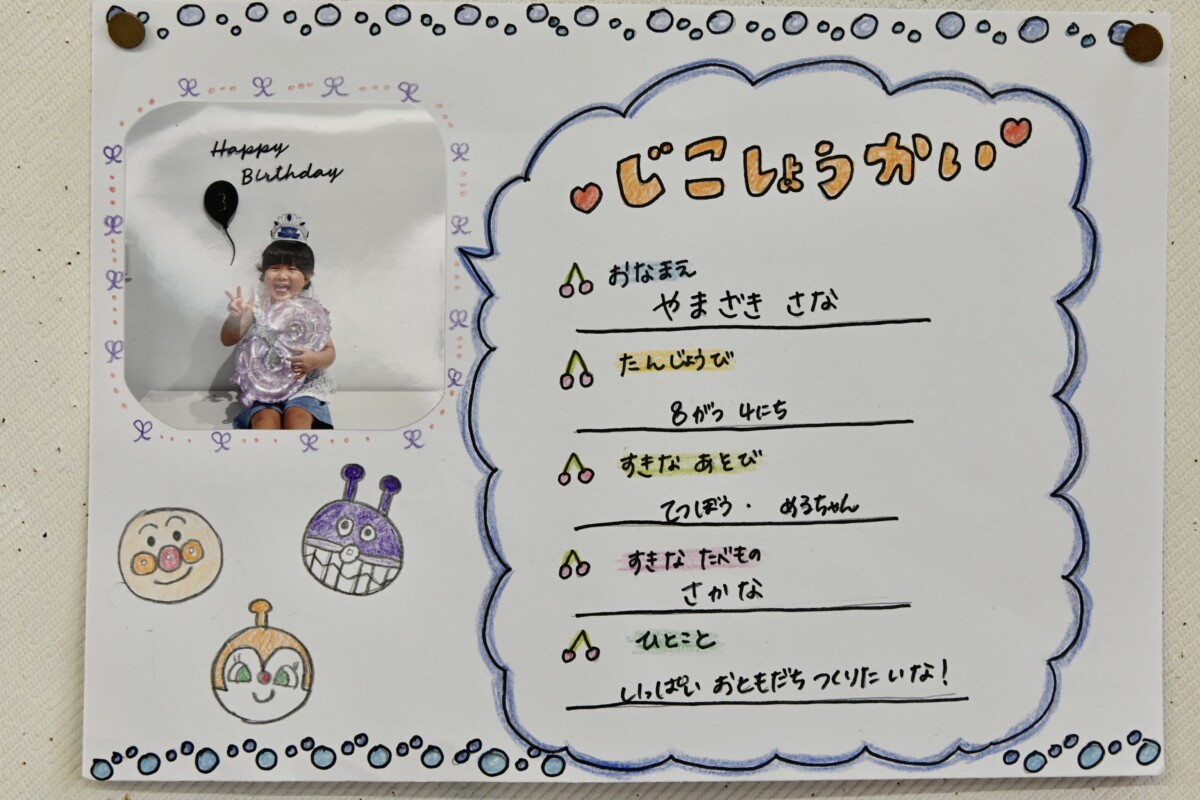 Happy
Birthday
3
じこしょうかい
おなまえ
やまざき さな
たんじょうび
8がつ 4にち
すきな あそび
てつぼう・ めるちゃん
すきな たべもの
さかな
ひとこと
いっぱい おともだち つくりたいな!